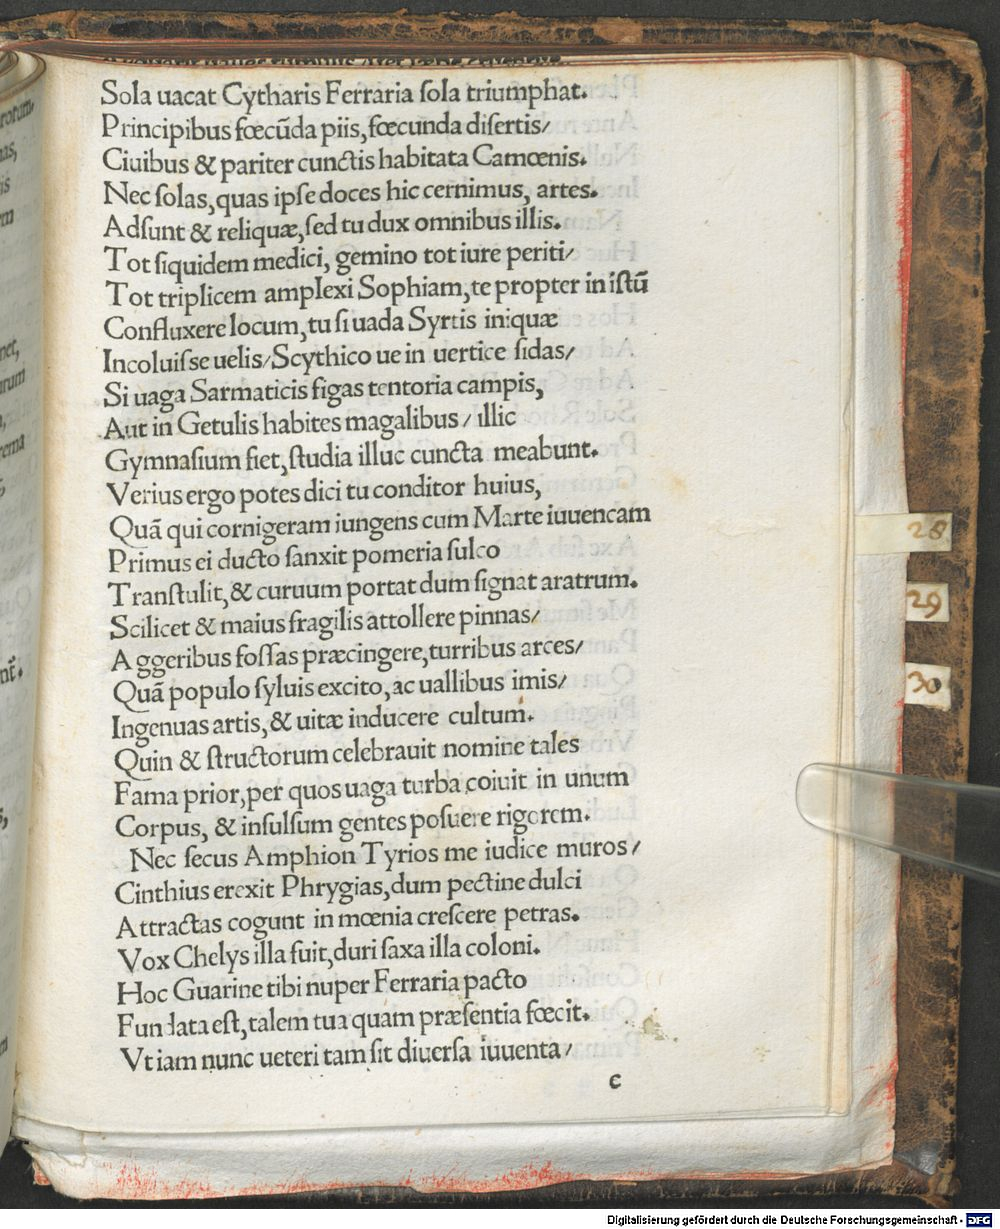 Sola uacat Cytharis Ferraria ſola triumphat.
Principibus fœcūda piis, fœcunda diſertis/
Ciuibus & pariter cunctis habitata Camœnis.
Nec ſolas, quas ipſe doces hic cernimus, artes.
Adſunt & reliquæ, ſed tu dux omnibus illis.
Tot ſiquidem medici, gemino tot iure periti/
Tot triplicem amplexi Sophiam, te propter in iſtū
Confluxere locum, tu ſi uada Syrtis iniquæ
Incoluiſse uelis/ Scythico ue in uertice ſidas/
Si uaga Sarmaticis figas tentoria campis,
Aut in Getulis habites magalibus/ illic
Gymnaſium fiet, ſtudia illuc cuncta meabunt.
Verius ergo potes dici tu conditor huius,
Quā qui cornigeram iungens cum Marte iuuencam
Primus ei ducto ſanxit pomeria ſulco
Tranſtulit, & curuum portat dum ſignat aratrum.
Scilicet & maius fragilis attollere pinnas/
Aggeribus foſſas præcingere, turribus arces/
Quā populo ſyluis excito, ac uallibus imis/
Ingenuas artis, & uitæ inducere cultum.
Quin & ſtructorum celebrauit nomine tales
Fama prior, per quos uaga turba coiuit in unum
Corpus, & inſulſum gentes poſuere rigorem.
Nec ſecus Amphion Tyrios me iudice muros/
Cinthius erexit Phrygias, dum pectine dulci
Attractas cogunt in mœnia creſcere petras.
Vox Chelys illa fuit, duri ſaxa illa coloni.
Hoc Guarine tibi nuper Ferraria pacto
Fundata eſt, talem tua quam præſentia fœcit.
Vt iam nunc ueteri tam ſit diuerſa iuuenta/
c
28
29
30
Digitalisierung gefördert durch die Deutsche Forschungsgemeinschaft - DFG